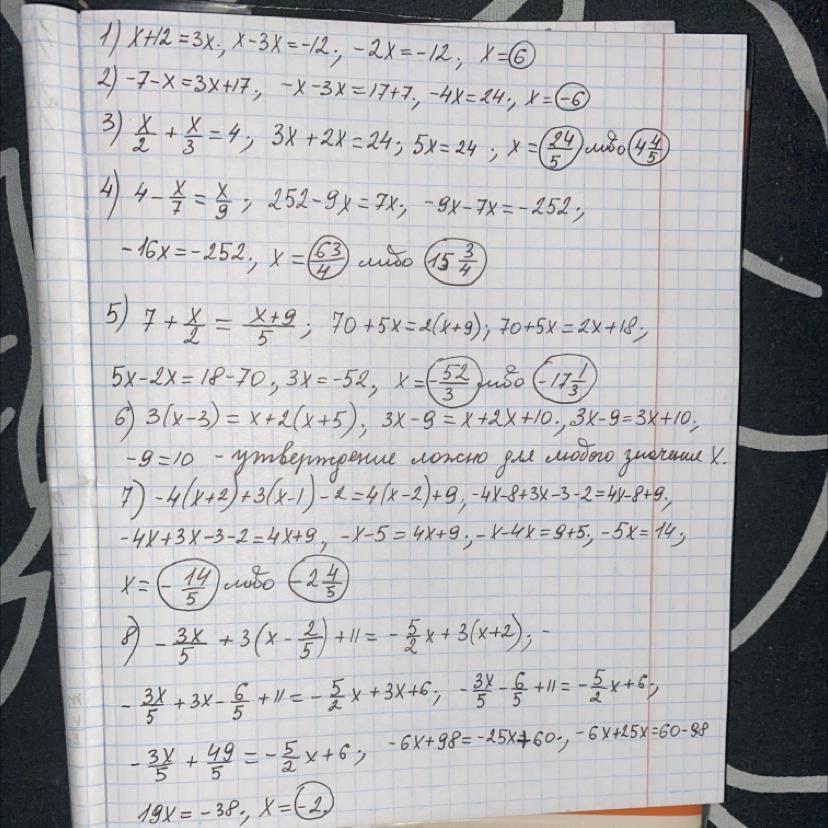 1) x+12=3x; x-3x=-12; -2x=-12; x=6
2) -7-x=3x+17; -x-3x=17+7; -4x=24; x=-6
3) x/2 + x/3 = 4; 3x+2x=24; 5x=24; x= 24/5 либо 4 4/5
4) 4 - x/7 = x/9; 252-9x=7x; -9x-7x=-252;
-16x=-252; x= 63/4 либо 15 3/4
5) 7 + x/2 = (x+9)/5; 70+5x=2(x+9); 70+5x=2x+18;
5x-2x=18-70; 3x=-52; x= -52/3 либо -17 1/3
6) 3(x-3)=x+2(x+5); 3x-9=x+2x+10; 3x-9=3x+10;
-9=10 - утверждение ложно для любого значения x.
7) -4(x+2)+3(x-1)-2=4(x-2)+9; -4x-8+3x-3-2=4x-8+9;
-4x+3x-3-2=4x+9; -x-5=4x+9; -x-4x=9+5; -5x=14;
x= -14/5 либо -2 4/5
8) -3x/5 + 3(x - 2/5) + 11 = -5/2 x + 3(x+2); -
-3x/5 + 3x - 6/5 + 11 = -5/2 x + 3x + 6; -3x/5 - 6/5 + 11 = -5/2 x + 6;
-3x/5 + 49/5 = -5/2 x + 6; -6x+98=-25x+60; -6x+25x=60-98
19x=-38; x=-2.